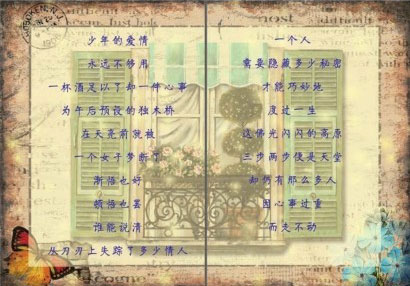 少年的爱情
永远不够用
一杯酒足以了却一件心事
为午后预设的独木桥
在天亮前就被
一个女子梦断了
渐悟也好
顿悟也罢
谁能说清
从刀刃上失踪了多少情人
一个人
需要隐藏多少秘密
才能巧妙地
度过一生
这佛光闪闪的高原
三步两步便是天堂
却仍有那么多人
因心事过重
而走不动